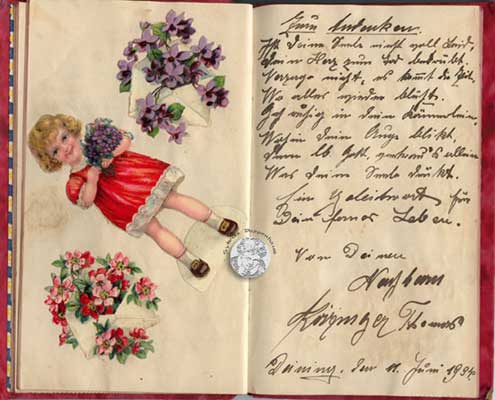 Zum Andenken.
Ist Deine Seele nicht voll Leid,
Dein Herz zum Tod betrübt.
Verzage nicht, es kommt die Zeit,
Wo alles wieder blüht.
Geh ruhig in dein Kämmerlein
Wohin dein Auge blickt,
denn lb. Gott, allein
Was deine Seele drückt.
Ein Geleitwort für
Dein fernes Leben.
Von Deinem
Nachbarn
Thomas
Deining, den 11. Juni 1934.